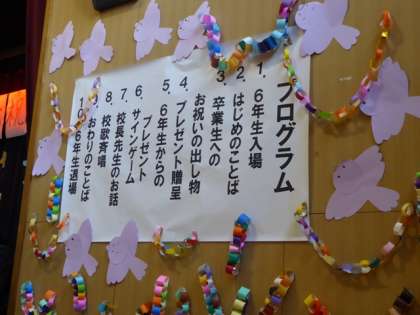 プログラム
1．6年生入場
2．はじめのことば
3．卒業生への
お祝いの出し物
4．プレゼント贈呈
5．6年生からの
プレゼント
6．サインゲーム
7．校長先生のお話
8．校歌斉唱
9．おわりのことば
10．6年生退場